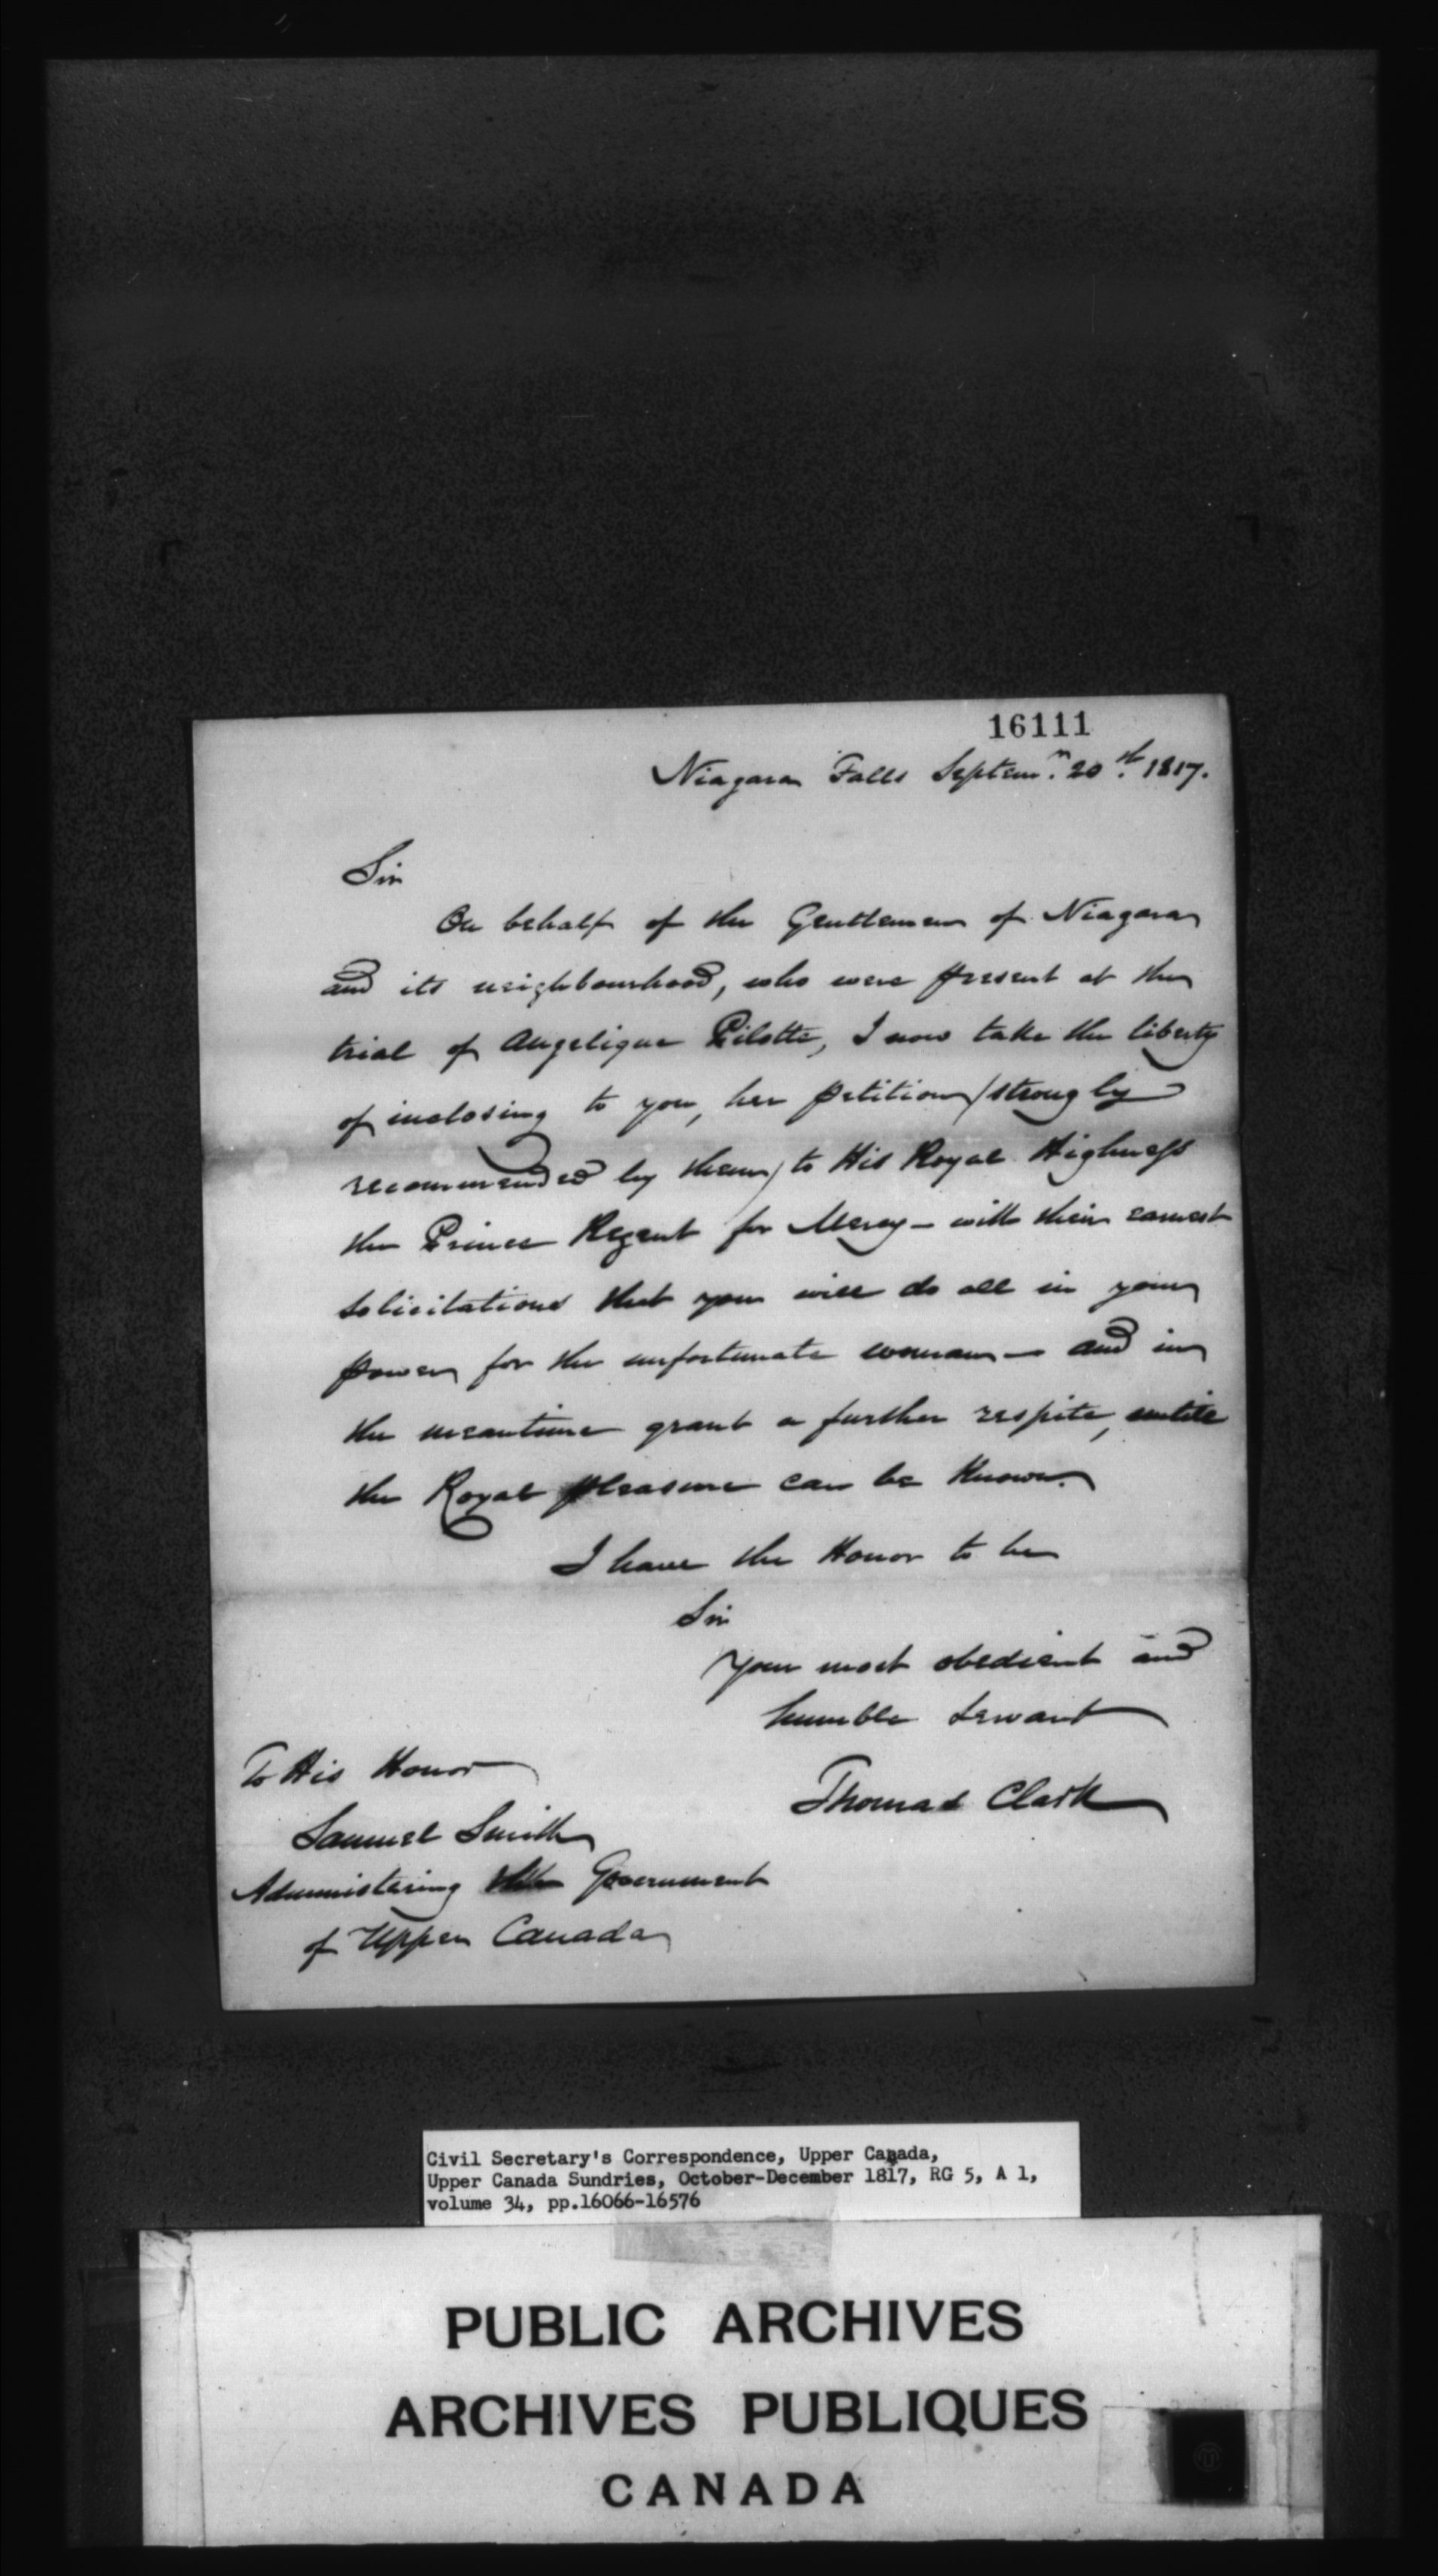 16111
Niagara Falls Septemr. 20th. 1817.
Sir
On behalf of the Gentlemen of Niagara
and its neighbourhood, who were present at the
trial of Angelique Pilotte, I now take the liberty
of inclosing to you, her petition /strongly
recommended by them/ to His Royal Highness
the Prince Regent for Mercy - with their earnest
solicitations that you will do all in your
power for the unfortunate woman - and in
the meantime grant a further respite, until
the Royal pleasure can be known.
I have the Honor to be
Sir
Your most obedient and
humble Servant
Thomas Clark
To His Honor
Samuel Smith
Administering the Government
of Upper Canada
Civil Secretary's Correspondence, Upper Canada,
Upper Canada Sundries, October-December 1817, RG 5, A 1,
volume 34, pp.16066-16576
PUBLIC ARCHIVES
ARCHIVES PUBLIQUES
CANADA